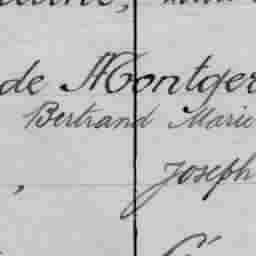 de Montger
Bertrand Marie
Joseph